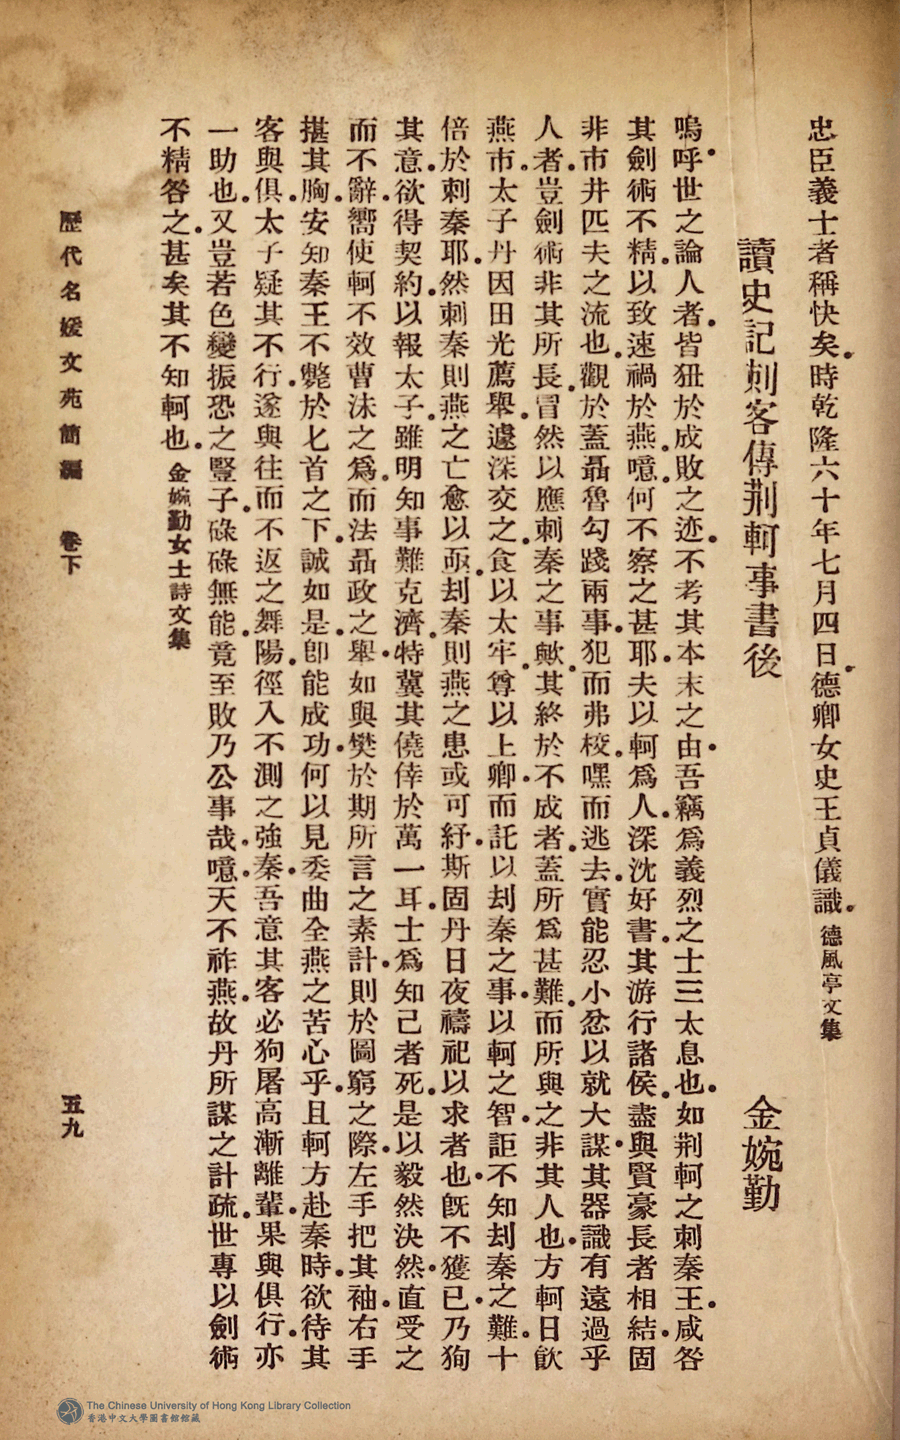 忠臣義士者稱快矣。時乾隆六十年七月四日。德卿女史王貞儀識。德風亭文集
讀史記刺客傳荆軻事書後　金婉勤
嗚呼。世之論人者。皆狃於成敗之迹。不考其本末之由。吾竊爲義烈之士三太息也。如荆軻之刺秦王。咸咎
其劍術不精。以致速禍於燕。噫。何不察之甚耶。夫以軻爲人深沈好書。其游行諸侯。盡與賢豪長者相結。固
非市井匹夫之流也。觀於蓋聶魯勾踐兩事。犯而弗校。嘿而逃去。實能忍小忿以就大謀。其器識有遠過乎
人者。豈劍術非其所長。冒然以應刺秦之事歟。其終於不成者。蓋所爲甚難。而所與之非其人也。方軻日飮
燕市。太子丹因田光薦舉。遽深交之。食以太牢。尊以上卿。而託以刦秦之事。以軻之智。詎不知刦秦之難。十
倍於刺秦耶。然刺秦則燕之亡愈以亟。刦秦則燕之患或可紓。斯固丹日夜禱祀以求者也。旣不獲已。乃狥
其意。欲得契約。以報太子。雖明知事難克濟。特冀其僥倖於萬一耳。士爲知己者死。是以毅然決然。直受之
而不辭。嚮使軻不效曹沫之爲。而法聶政之舉。如與樊於期所言之素計。則於圖窮之際。左手把其袖。右手
揕其胸。安知秦王不斃於匕首之下。誠如是。卽能成功。何以見委曲全燕之苦心乎。且軻方赴秦時。欲待其
客與俱。太子疑其不行。遂與往而不返之舞陽。徑入不測之強秦。吾意其客必狗屠高漸離輩。果與俱行。亦
一助也。又豈若色變振恐之豎子。碌碌無能。竟至敗乃公事哉。噫。天不祚燕。故丹所謀之計疏。世專以劍術
不精咎之。甚矣其不知軻也。金婉勤女士詩文集
歷代名媛文苑簡編　卷下　五九
The Chinese University of Hong Kong Library Collection
香港中文大學圖書館館藏